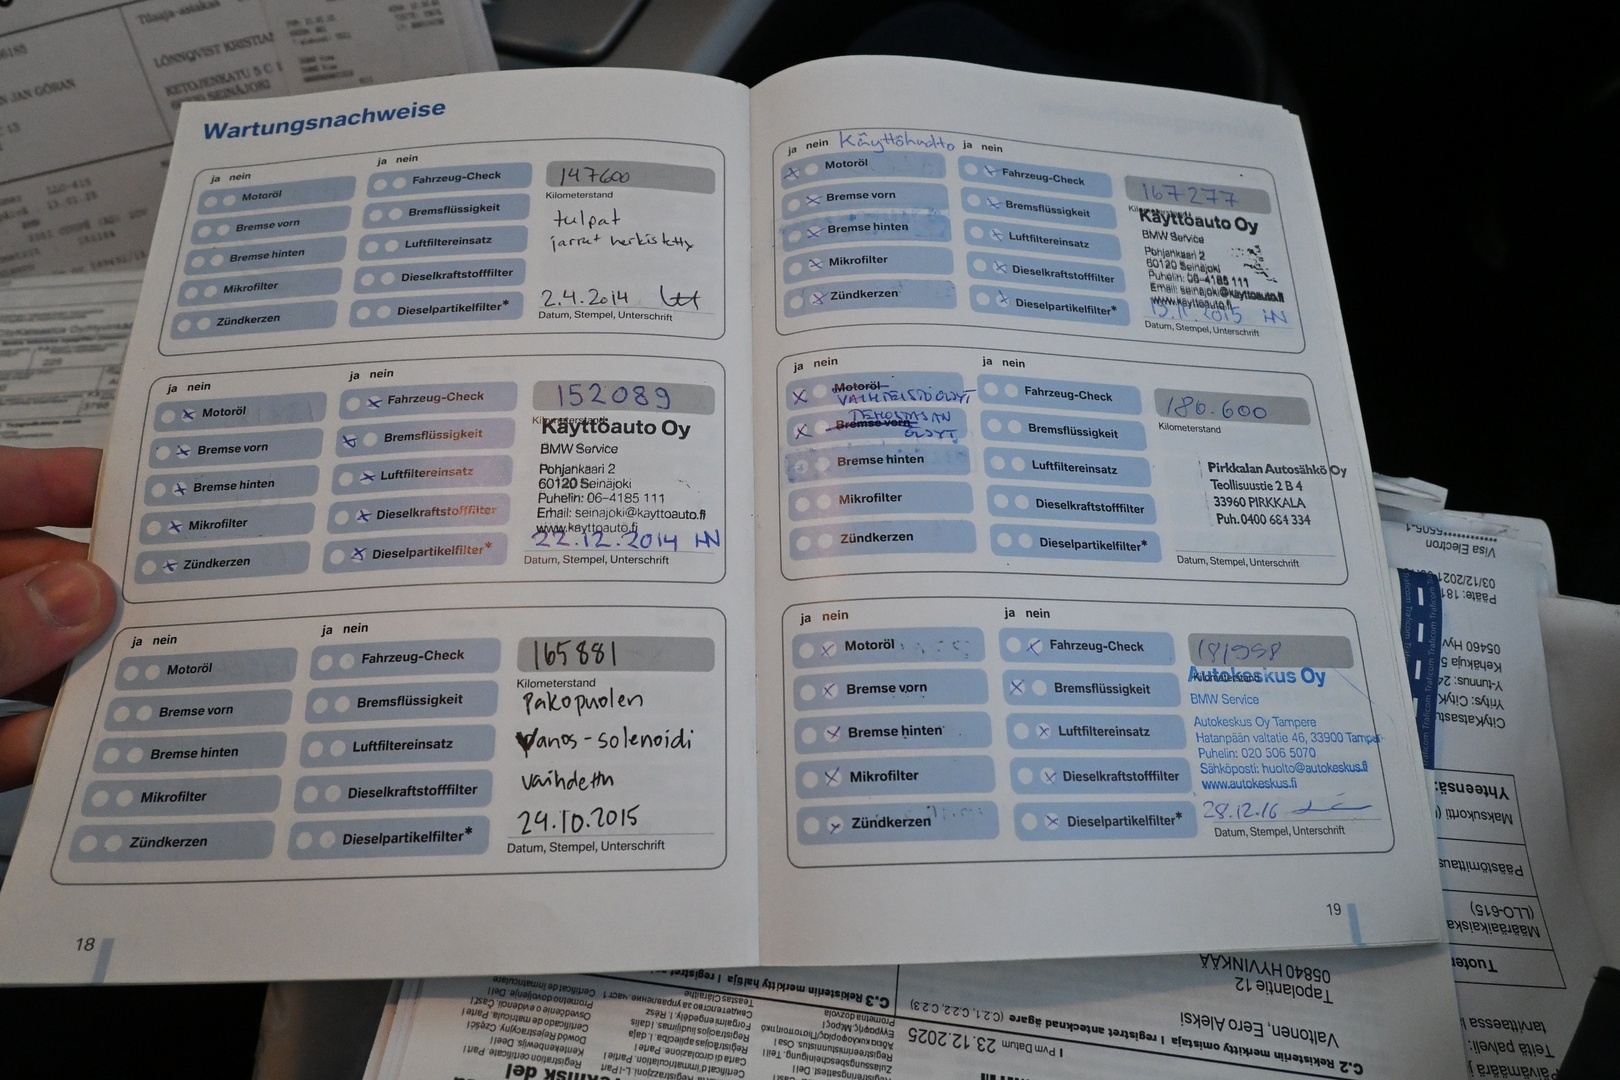 Wartungsnachweise
ja nein
ja nein
Motoröl
Bremse vorn
Bremse hinten
Mikrofilter
Zündkerzen
Fahrzeug-Check
Bremsflüssigkeit
Luftfiltereinsatz
Dieselkraftstofffilter
Dieselpartikelfilter*
147600
Kilometerstand
tulpat
jarrut herkistetty
2.4.2014
Datum, Stempel, Unterschrift
ja nein
ja nein
Motoröl
Bremse vorn
Bremse hinten
Mikrofilter
Zündkerzen
Fahrzeug-Check
Bremsflüssigkeit
Luftfiltereinsatz
Dieselkraftstofffilter
Dieselpartikelfilter*
152089
Kilometerstand
Käyttöauto Oy
BMW Service
Pohjankaari 2
60120 Seinäjoki
Puhelin: 06-4185 111
Email: seinajoki@kayttoauto.fi
www.kayttoauto.fi
22.12.2014 HN
Datum, Stempel, Unterschrift
ja nein
ja nein
Motoröl
Bremse vorn
Bremse hinten
Mikrofilter
Zündkerzen
Fahrzeug-Check
Bremsflüssigkeit
Luftfiltereinsatz
Dieselkraftstofffilter
Dieselpartikelfilter*
165881
Kilometerstand
Pakopuolen
Vanos-solenoidi
vaihdettu
29.10.2015
Datum, Stempel, Unterschrift
18
ja nein Käyttöhuolto ja nein
Motoröl
Bremse vorn
Bremse hinten
Mikrofilter
Zündkerzen
Fahrzeug-Check
Bremsflüssigkeit
Luftfiltereinsatz
Dieselkraftstofffilter
Dieselpartikelfilter*
167277
Käyttöauto Oy
BMW Service
Pohjankaari 2
60120 Seinäjoki
Puhelin: 06-4185 111
Email: seinajoki@kayttoauto.fi
www.kayttoauto.fi
2015 HN
Datum, Stempel, Unterschrift
ja nein
ja nein
Motoröl
VAIHTEISTOÖLJYT
Bremse vorn
ÖLJYT
Bremse hinten
Mikrofilter
Zündkerzen
Fahrzeug-Check
Bremsflüssigkeit
Luftfiltereinsatz
Dieselkraftstofffilter
Dieselpartikelfilter*
180.600
Kilometerstand
Pirkkalan Autosähkö Oy
Teollisuustie 2 B 4
33960 PIRKKALA
Puh. 0400 664 334
Datum, Stempel, Unterschrift
ja nein
ja nein
Motoröl
Bremse vorn
Bremse hinten
Mikrofilter
Zündkerzen
Fahrzeug-Check
Bremsflüssigkeit
Luftfiltereinsatz
Dieselkraftstofffilter
Dieselpartikelfilter*
181998
Kilometerstand
Autokeskus Oy
BMW Service
Autokeskus Oy Tampere
Hatanpään valtatie 46, 33900 Tampere
Puhelin: 020 506 5070
Sähköposti: huolto@autokeskus.fi
www.autokeskus.fi
28.12.16
Datum, Stempel, Unterschrift
19
Tilaaja-asiakas
LÖNNQVIST KRISTIAN
KETOJENKATU 5 C 1
SEINÄJOKI
JAN GÖRAN
Visa Electron
03/12/2021
05460 Hyv
Yhteensä:
Maksukortti
Päästömittaus
(LLO-615)
Määräaikaiskatsastus
Tuotet
C.3 Rekisteriin merkitty haltija
C.2 Rekisteriin merkitty omistaja I registret antecknad ägare (C.2.1, C.2.2, C.2.3)
Valtonen, Eero Aleksi
Tapolantie 12
05840 HYVINKÄÄ
I Pvm Datum 23.12.2025